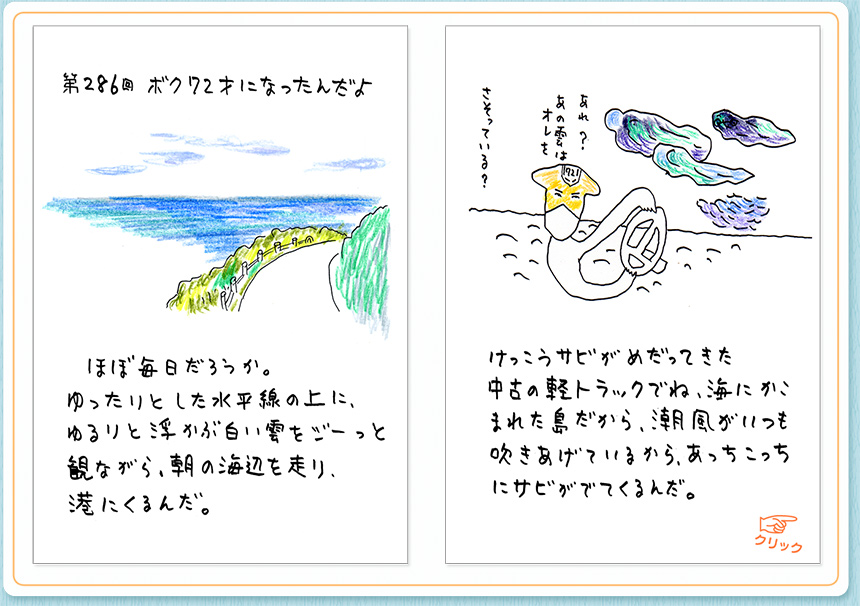 第286回 ボク72才になったんだよ
ほぼ毎日だろうか。
ゆったりとした水平線の上に、
ゆるりと浮かぶ白い雲をジーっと
観ながら、朝の海辺を走り、
港にくるんだ。
あれ?
あの雲は
オレを
さそっている?
721
けっこうサビがめだってきた
中古の軽トラックでね、海にかこ
まれた島だから、潮風がいつも
吹きあげているから、あっちこっち
にサビがでてくるんだ。
クリック